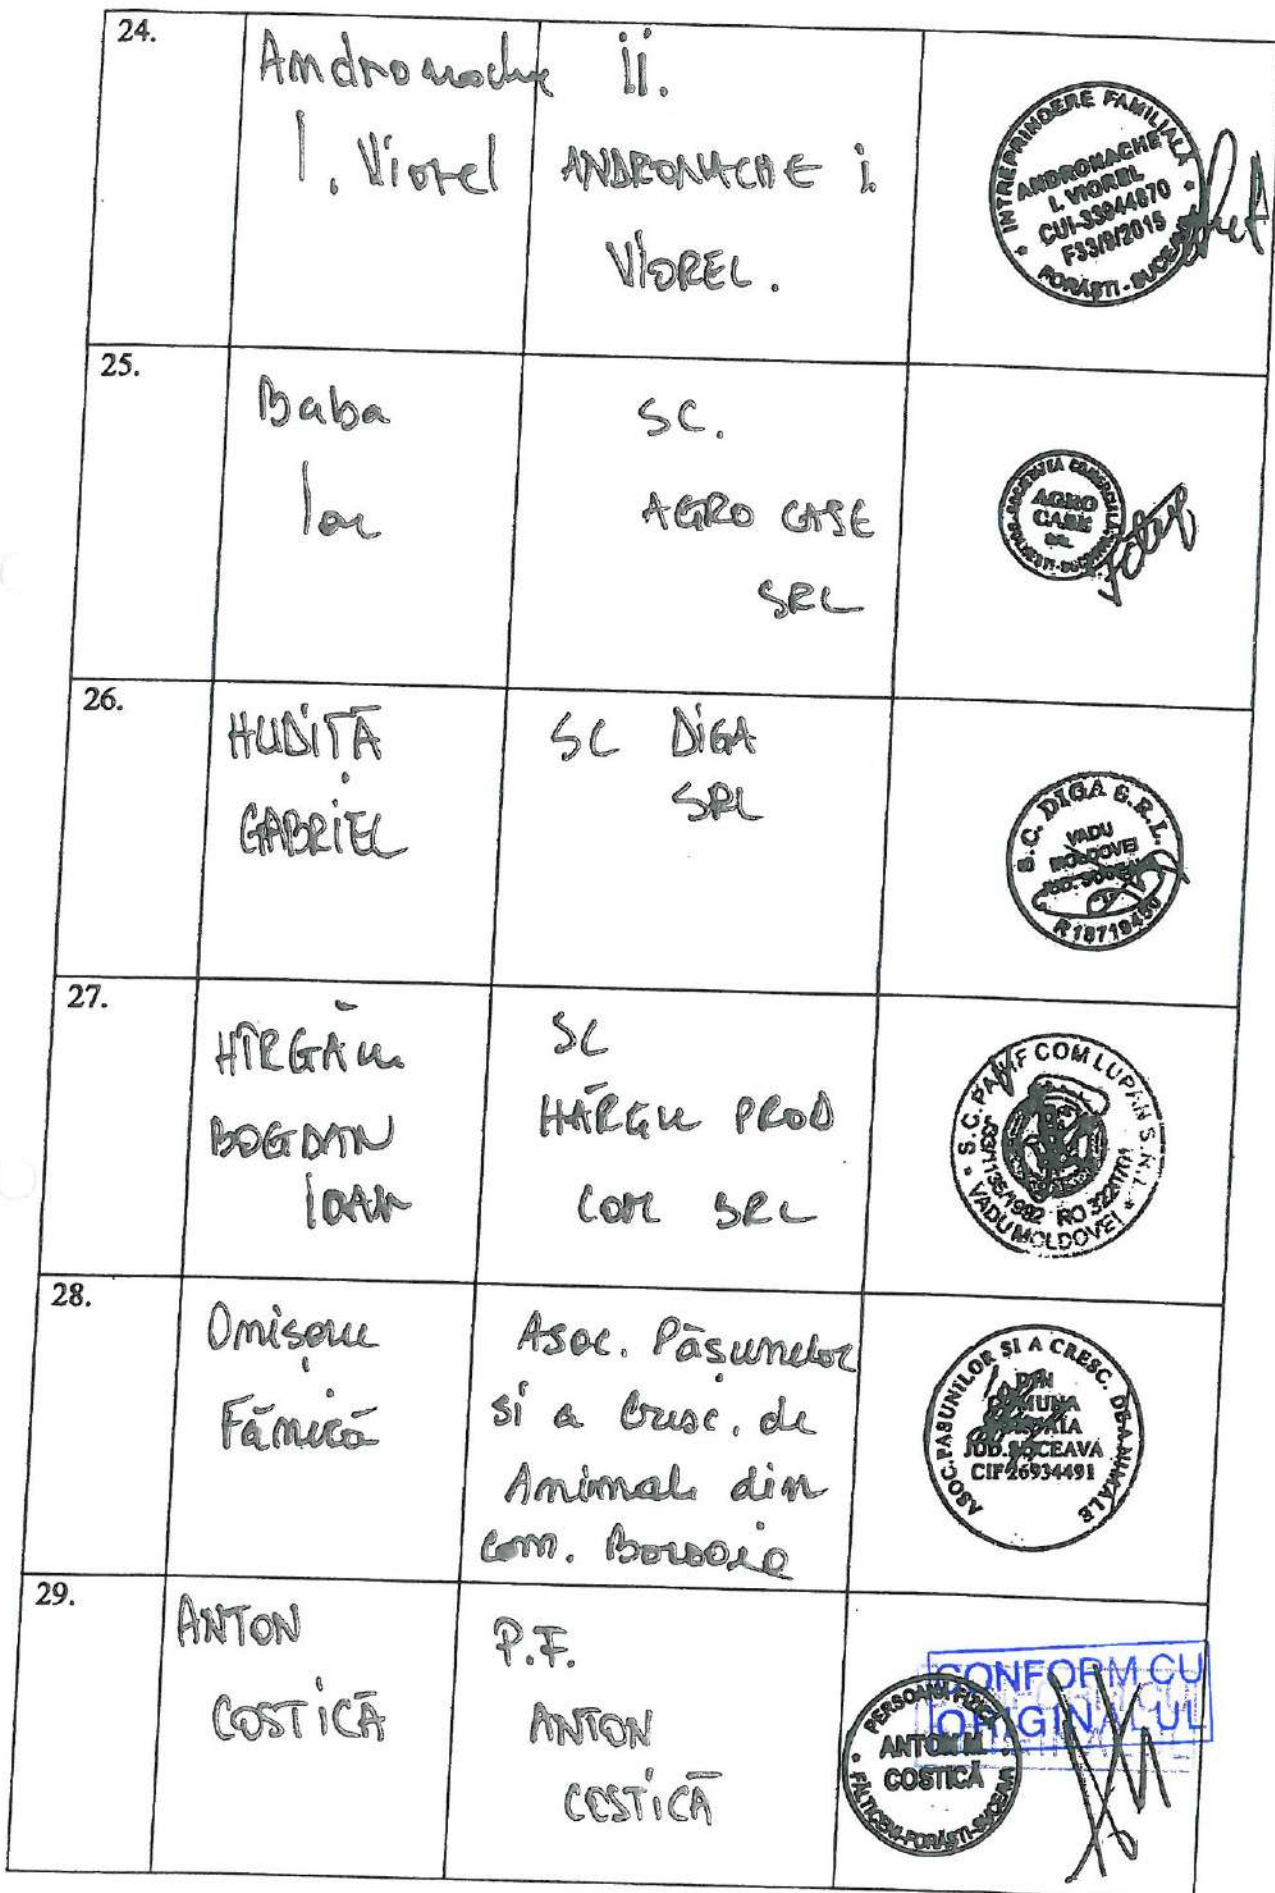 24.
Andronache
I. Viorel
ii.
ANDRONACHE i.
VIOREL.
INTREPRINDERE FAMILIALĂ
ANDRONACHE
I. VIOREL
CUI-33944670
F33/9/2015
FORĂȘTI - SUCEAVA
25.
Baba
SC.
AGRO CASE
SRL
SOCIETATEA COMERCIALA
AGRO
CASE
SRL
26.
HUDIȚĂ
GABRIEL
SC DIGA
SRL
S.C. DIGA S.R.L.
VADU
MOLDOVEI
JUD.
27.
BOGDAN
IOAN
SC
PROD
COM SRL
COM LUPAN S.R.L.
VADU MOLDOVEI
28.
Fănică
Asoc. Pășunelor
si a Cresc. de
Animale din
com. Boroaia
ASOC. PASUNILOR SI A CRESC. DE ANIMALE
DIN
COMUNA
JUD. SUCEAVA
CIF 26934491
29.
ANTON
COSTICĂ
P.F.
ANTON
COSTICĂ
PERSOANA FIZICA
ANTON M.
COSTICĂ
FĂLTICENI-FORĂȘTI-SUCEAVA
CONFORM CU
ORIGINALUL